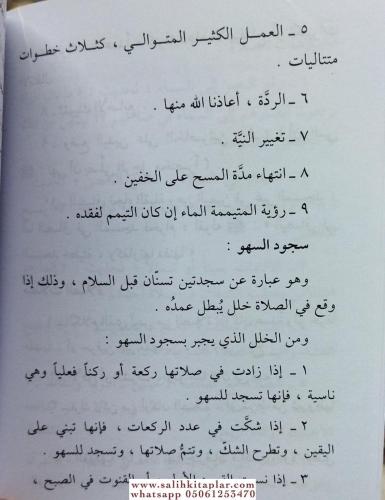 ٥ ـ العمـل الكثيـر المتـوالـي ، كثـلاث خطـوات
متتاليات .
٦ ـ الردَّة ، أعاذنا الله منها .
٧ ـ تغيير النيَّة .
٨ ـ انتهاء مدَّة المسح على الخفين .
٩ ـ رؤية المتيممة الماء إن كان التيمم لفقده .
سجود السهو :
وهو عبارة عن سجدتين تسنّان قبل السلام ، وذلك إذا
وقع في الصلاة خلل يُبطل عمدُه .
ومن الخلل الذي يجبر بسجود السهو :
١ ـ إذا زادت في صلاتها ركعة أو ركناً فعلياً وهي
ناسية ، فإنها تسجد للسهو .
٢ ـ إذا شكَّت في عدد الركعات ، فإنها تبني على
اليقين ، وتطرح الشكّ ، وتتمُّ صلاتها ، وتسجد للسهو .
٣ ـ إذا نسيت القنوت في الصبح ،
www.salihkitaplar.com
whatsapp 05061253470